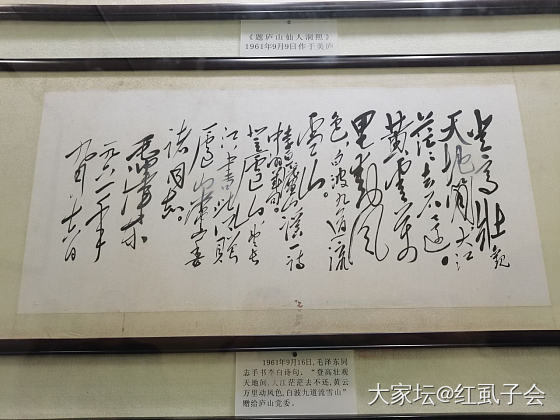 《题庐山仙人洞照》
1961年9月9日作于美庐
登高壮观
天地间大江
茫茫去不还。
黄云万
里动风
色,白波九道流
雪山。
李白庐山谣一诗
中的几句。
登庐山,望长
江,书此以赠
庐山党委
诸同志。
毛泽东
一九六一年
九月十六日
1961年9月16日,毛泽东同
志手书李白诗句:“登高壮观
天地间,大江茫茫去不还,黄云
万里动风色,白波九道流雪山”
赠给庐山党委。
大家坛@红虱子会